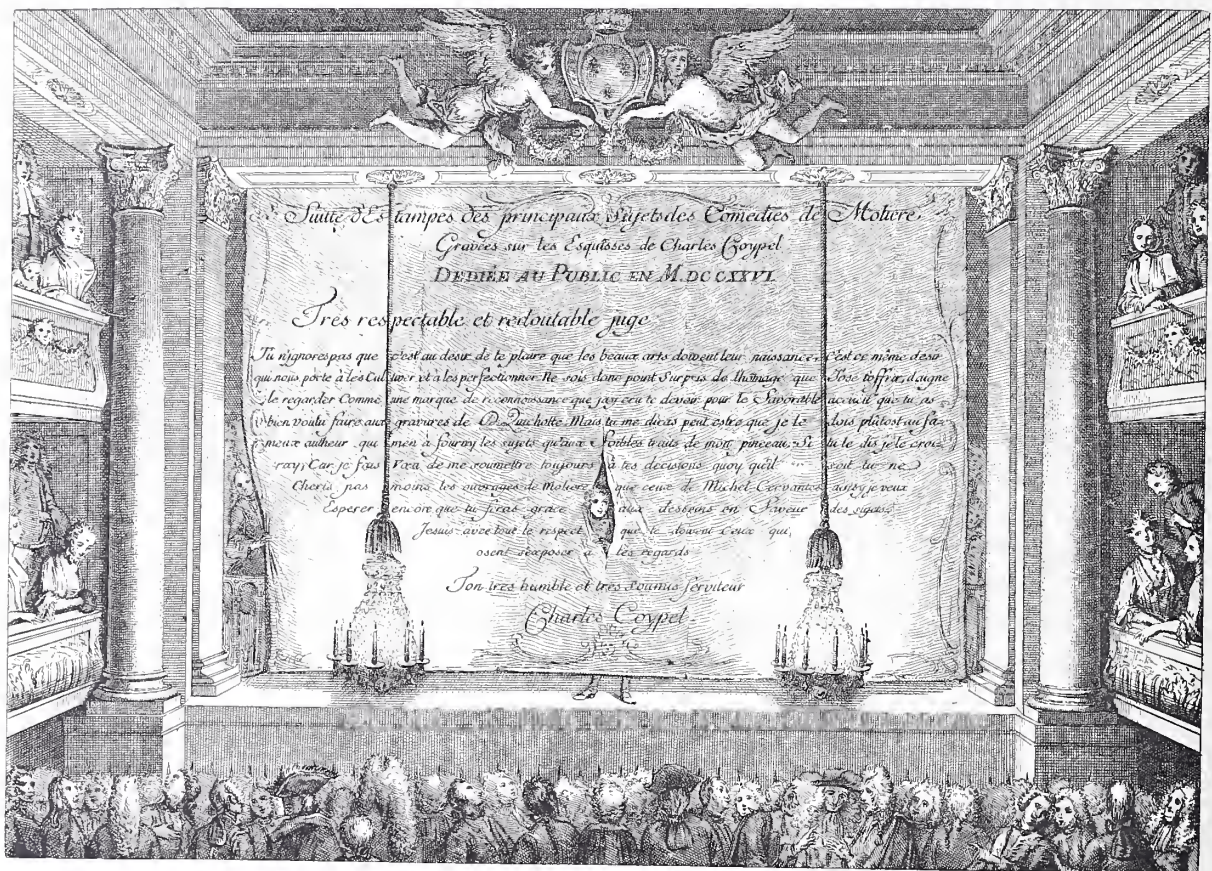 Suitte d'Estampes des principaux Sujets des Comedies de Moliere
Gravées sur les Esquisses de Charles Coypel
DEDIÉE AU PUBLIC EN M.DCCXXVI.
Tres respectable et redoutable juge
Tu n'ignores pas que c'est au desir de te plaire que les beaux arts doivent leur naissance, C'est ce même desir
qui nous porte à les Cultiver et à les perfectionner. Ne sois donc point Surpris de l'homage que J'ose t'offrir, daigne
le regarder Comme une marque de reconnoissance que j'ay cru te devoir pour le Favorable accueil que tu as
bien voulu faire aux gravures de D. Quichotte. Mais tu me diras peut estre que je le dois plûtost au fa-
meux autheur qui m'en à fourny les sujets qu'aux Foibles traits de mon pinceau. Si tu le dis je le croi-
ray, Car je fais Vœu de me soumettre toujours à tes decisions quoy qu'il en soit tu ne
Cheris pas moins les ouvrages de Moliere que ceux de Michel Cervantes ainsy je veux
Esperer encore que tu feras grace aux desseins en Faveur des sujets.
Je suis avec tout le respect que te doivent Ceux qui
osent s'exposer à tes regards
Ton tres humble et tres soumis serviteur
Charles Coypel.